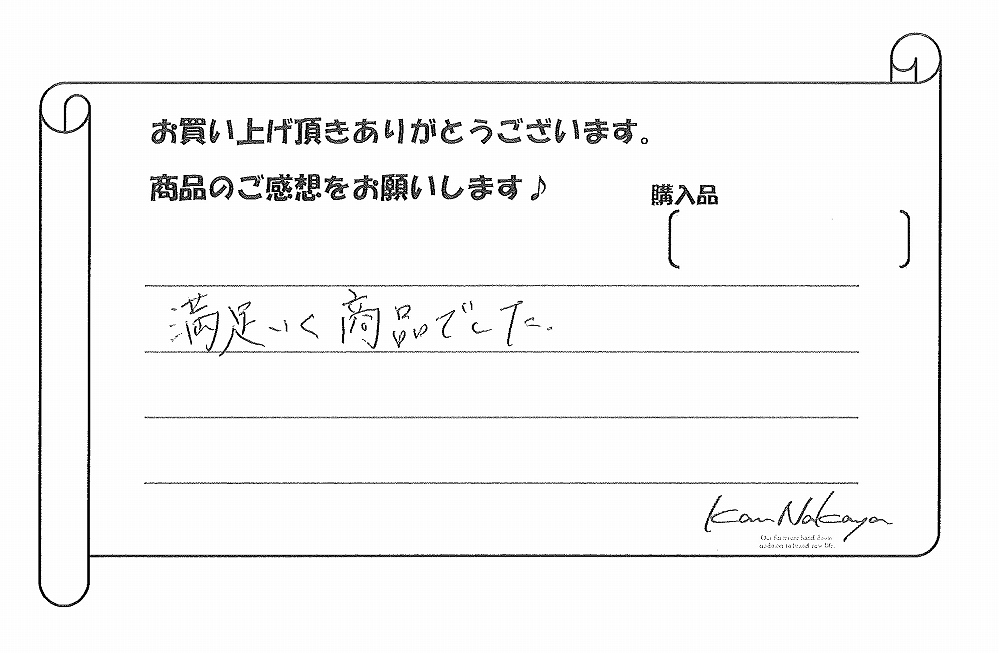 お買い上げ頂きありがとうございます。
商品のご感想をお願いします♪
購入品
満足いく商品でした.
Kan Nakaya